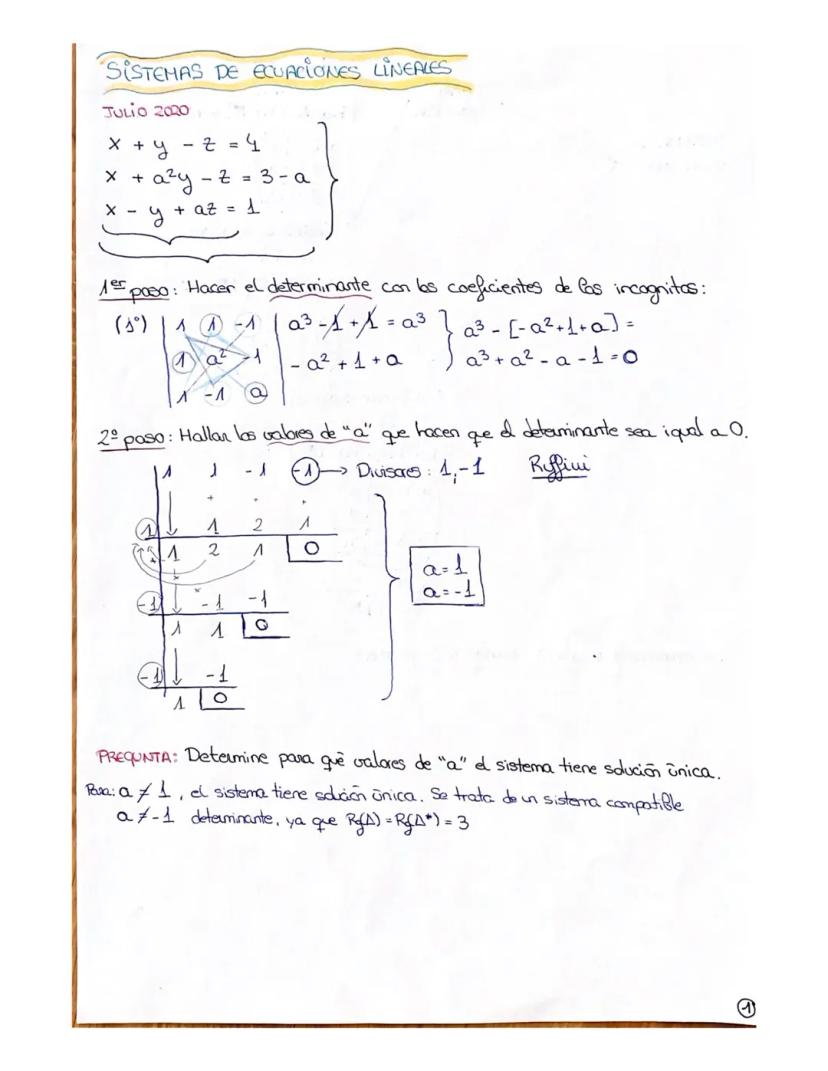 SISTEMAS DE ECUACIONES LINEALES
JULIO 2020
x + y - z = 4
x + a²y - z = 3 - a
x - y + az = 1
1er paso: Hacer el determinante con los coeficientes de las incognitas:
(1º) | 1 1 -1 | a³ - 1 + 1 = a³ } a³ - [-a² + 1 + a] =
1 a² -1 | - a² + 1 + a } a³ + a² - a - 1 = 0
1 -1 a
2º paso: Hallar los valores de "a" que hacen que el determinante sea igual a 0.
1 1 -1 -1 → Divisores: 1, -1 Ruffini
+ + +
1 ↓ 1 2 1
1 2 1 0
a = 1
a = -1
-1 ↓ -1 -1
1 1 0
-1 ↓ -1
1 0
PREGUNTA: Determine para qué valores de "a" el sistema tiene solución única.
Para: a ≠ 1, el sistema tiene solución única. Se trata de un sistema compatible
a ≠ -1 determinante, ya que Rg(A) = Rg(A*) = 3
1